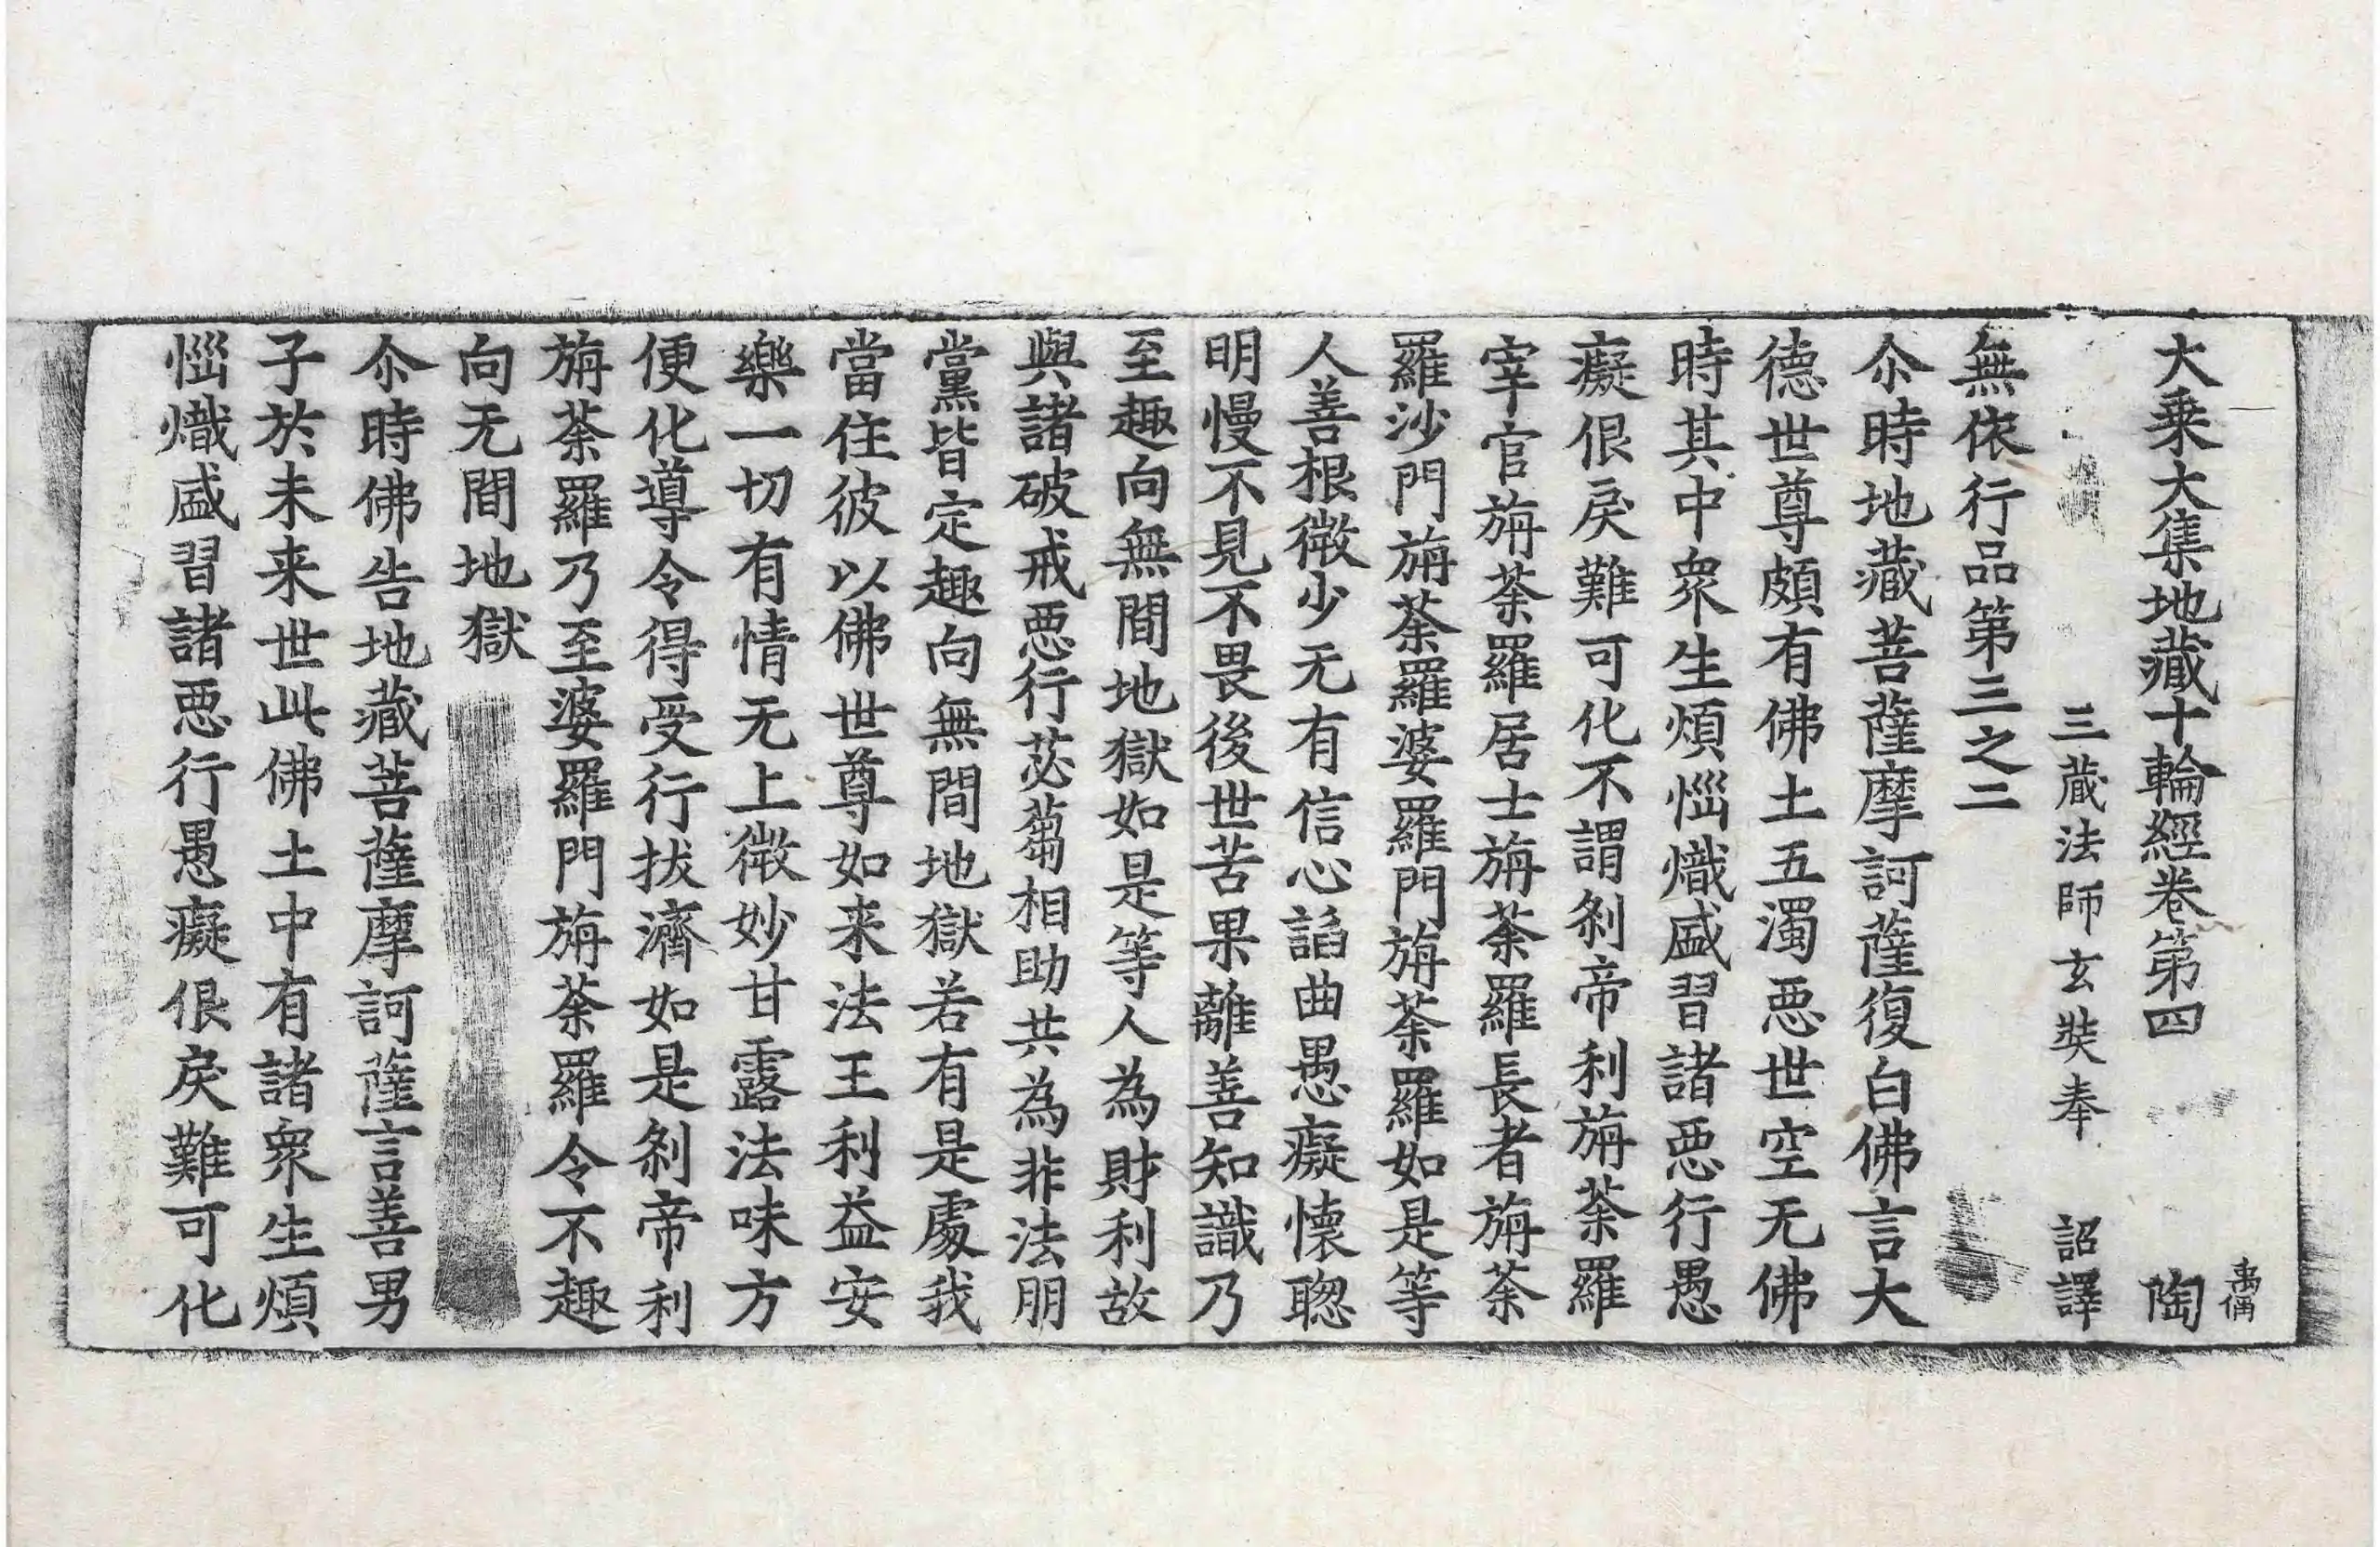 禹偁
大乗大集地藏十輪經卷第四 陶
三蔵法師玄奘奉 詔譯
無依行品第三之二
尒時地藏菩薩摩訶薩復白佛言大
德世尊頗有佛土五濁惡世空无佛
時其中衆生煩惱熾盛習諸惡行愚
癡佷戾難可化不謂剎帝利旃荼羅
宰官旃荼羅居士旃荼羅長者旃荼
羅沙門旃荼羅婆羅門旃荼羅如是等
人善根微少无有信心諂曲愚癡懷聦
明慢不見不畏後世苦果離善知識乃
至趣向無間地獄如是等人為財利故
與諸破戒惡行苾蒭相助共為非法朋
黨皆定趣向無間地獄若有是處我
當住彼以佛世尊如来法王利益安
樂一切有情无上微妙甘露法味方
便化導令得受行拔濟如是剎帝利
旃荼羅乃至婆羅門旃荼羅令不趣
向无間地獄
尒時佛告地藏菩薩摩訶薩言善男
子於未来世此佛土中有諸衆生煩
惱熾盛習諸惡行愚癡佷戾難可化